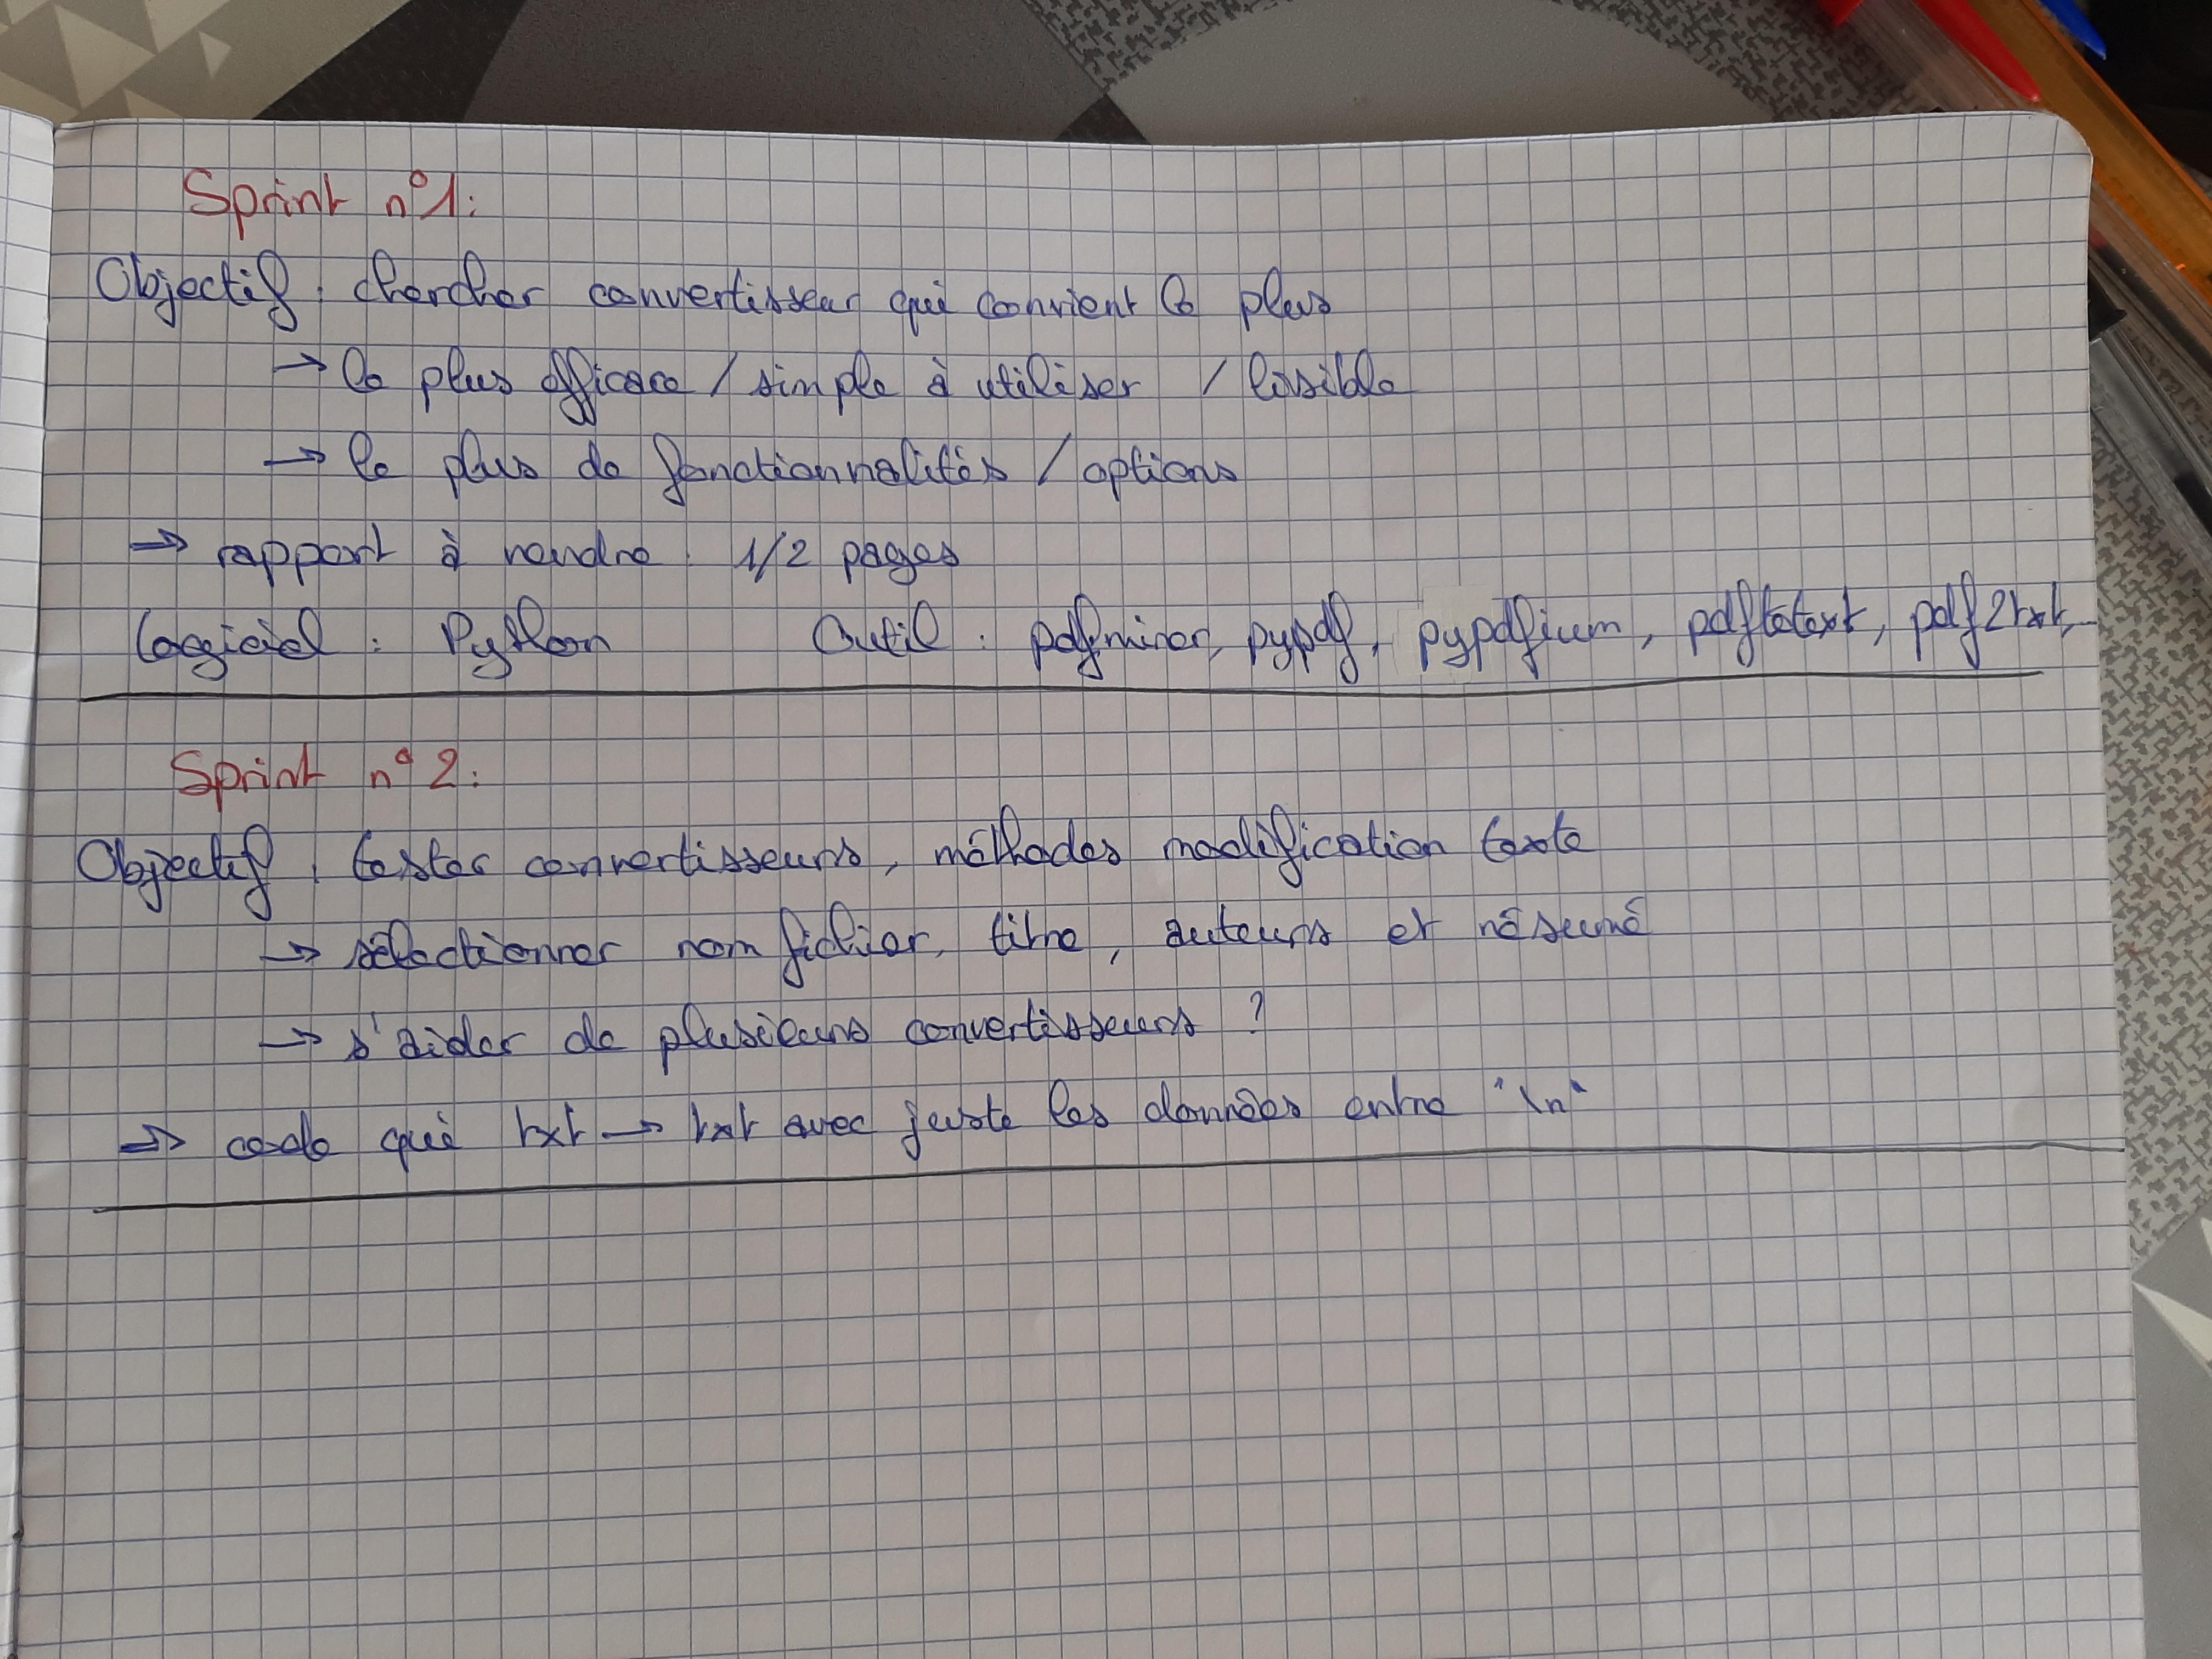 Sprint n°1:
Objectif : chercher convertisseur qui convient le plus
→ le plus efficace / simple à utiliser / lisible
→ le plus de fonctionnalités / options
⇒ rapport à rendre : 1/2 pages
Logiciel : Python Outil : pdfminer, pypdf, pypdfium, pdftotext, pdf2txt, ..
Sprint n°2:
Objectif : tester convertisseurs, méthodes modification texte
→ sélectionner nom fichier, titre, auteurs et résumé
→ s'aider de plusieurs convertisseurs ?
⇒ code qui txt → txt avec juste les données entre '\n'